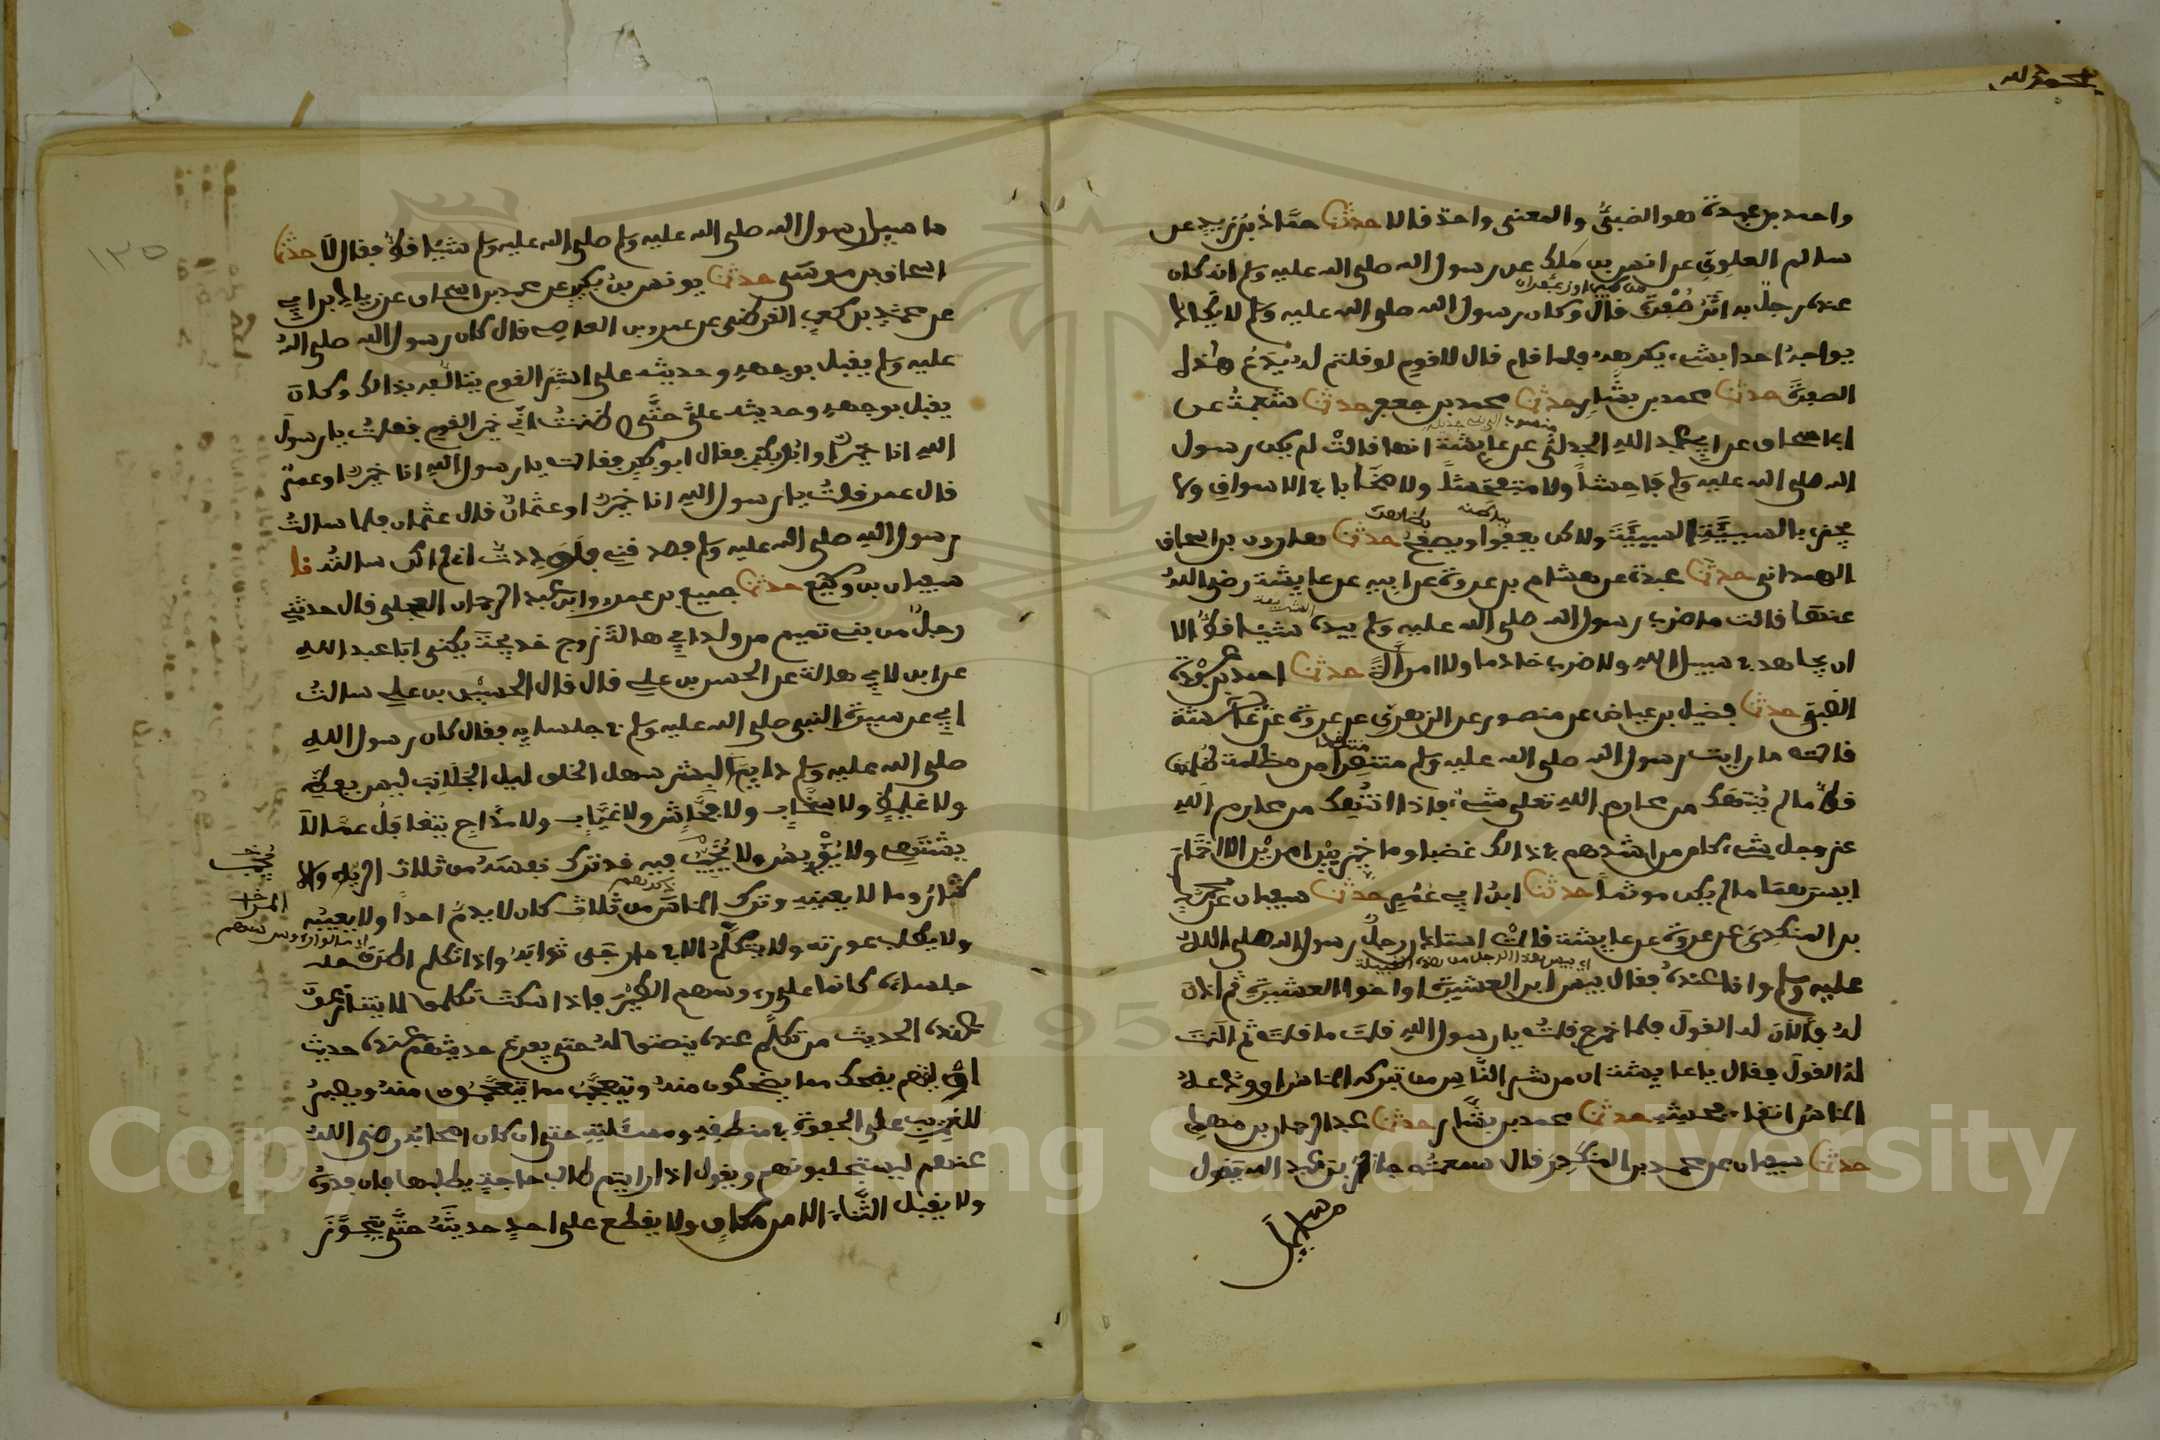 الحمد لله
واحمد بن عبدة هو الضبي والمعنى واحد قالا حدثنا حماد بن زيد عن
سالم العلوي عن انس بن ملك عن رسول الله صلى الله عليه وسلم انه كان
عنده رجل به اثر صفرة قال وكان رسول الله صلى الله عليه وسلم لا يكاد
يواجه احدا بشيء يكرهه فلما قام قال للقوم لو قلتم له يدع هذه
الصفرة حدثنا محمد بن بشار حدثنا محمد بن جعفر حدثنا شعبة عن
ابي اسحاق عن ابي عبد الله الجدلي عن عايشة انها قالت لم يكن رسول
الله صلى الله عليه وسلم فاحشا ولا متفحشا ولا صخابا في الاسواق ولا
يجزي بالسيئة السيئة ولاكن يعفوا ويصفح حدثنا هارون بن اسحاق
الهمداني حدثنا عبدة عن هشام بن عروة عن ابيه عن عايشة رضي الله
عنها قالت ما ضرب رسول الله صلى الله عليه وسلم بيده شيئا قط الا
ان يجاهد في سبيل الله ولا ضرب خادما ولا امراة حدثنا احمد بن عبدة
الضبي حدثنا فضيل بن عياض عن منصور عن الزهري عن عروة عن عايشة
قالت ما رايت رسول الله صلى الله عليه وسلم منتصرا من مظلمة ظلمها
قط ما لم ينتهك من محارم الله تعلى شيء فاذا انتهك من محارم الله
عز وجل شيء كان من اشدهم في ذالك غضبا وما خير بين امرين الا اختار
ايسرهما ما لم يكن موثما حدثنا ابن ابي عمر حدثنا سفيان عن محمد
بن المنكدر عن عروة عن عايشة قالت استاذن رجل رسول الله صلى الله
عليه وسلم وانا عنده فقال بيس ابن العشيرة او اخوا العشيرة ثم اذن
له فالان له القول فلما خرج قلت يا رسول الله قلت ما قلت ثم النت
له القول فقال يا عايشة ان من شر الناس من تركه الناس او ودعه
الناس اتقاء فحشه حدثنا محمد بن بشار حدثنا عبد الرحمان بن مهدي
حدثنا سفيان عن محمد بن المنكدر قال سمعت جابر بن عبد الله يقول
ما سيل
ما سيل رسول الله صلى الله عليه وسلم صلى الله عليه وسلم شيئا قط فقال لا حدثنا
اسحاق بن موسى حدثنا يونس بن بكير عن محمد بن اسحاق عن زياد بن ابي
عن محمد بن كعب القرظي عن عمرو بن العاصي قال كان رسول الله صلى الله
عليه وسلم يقبل بوجهه وحديثه على اشر القوم يتالفهم بذالك وكان
يقبل بوجهه وحديثه علي حتى ظننت اني خير القوم فقلت يا رسول
الله انا خير او ابو بكر فقال ابو بكر فقلت يا رسول الله انا خير او عمر
قال عمر قلت يا رسول الله انا خير او عثمان قال عثمان فلما سالت
رسول الله صلى الله عليه وسلم فصدقني فلوددت اني لم اكن سالته حدثنا
سفيان بن وكيع حدثنا جميع بن عمر بن عبد الرحمان العجلي قال حدثني
رجل من بني تميم من ولد ابي هالة زوج خديجة يكنى ابا عبد الله
عن ابن لابي هالة عن الحسن بن علي قال قال الحسين بن علي سالت
ابي عن سيرة النبي صلى الله عليه وسلم في جلسايه فقال كان رسول الله
صلى الله عليه وسلم دايم البشر سهل الخلق لين الجانب ليس بفظ
ولا غليظ ولا صخاب ولا فحاش ولا عياب ولا مداح يتغافل عما لا
يشتهي ولا يؤيس ولا يخيب فيه قد ترك نفسه من ثلاث الرياء والا
كثار وما لا يعنيه وترك الناس من ثلاث كان لا يذم احدا ولا يعيبه
ولا يطلب عورته ولا يتكلم الا في ما رجى ثوابه واذا تكلم اطرق
جلساؤه كانما على رءوسهم الطير فاذا سكت تكلموا لا يتنازعون
عنده الحديث من تكلم عنده ينصتوا له حتى يفرغ حديثهم عنده حديث
اولهم يضحك مما يضحكون منه ويتعجب مما يتعجبون منه ويصبر
للغريب على الجفوة في منطقه ومسئلته حتى ان كان اصحابه رضي الله
عنهم ليستجلبونهم ويقول اذا رايتم طالب حاجة يطلبها فارفدوه
ولا يقبل الثناء الا من مكاف ولا يقطع على احد حديثه حتى يتجوز
١٣٥
Copyright © King Saud University
1957